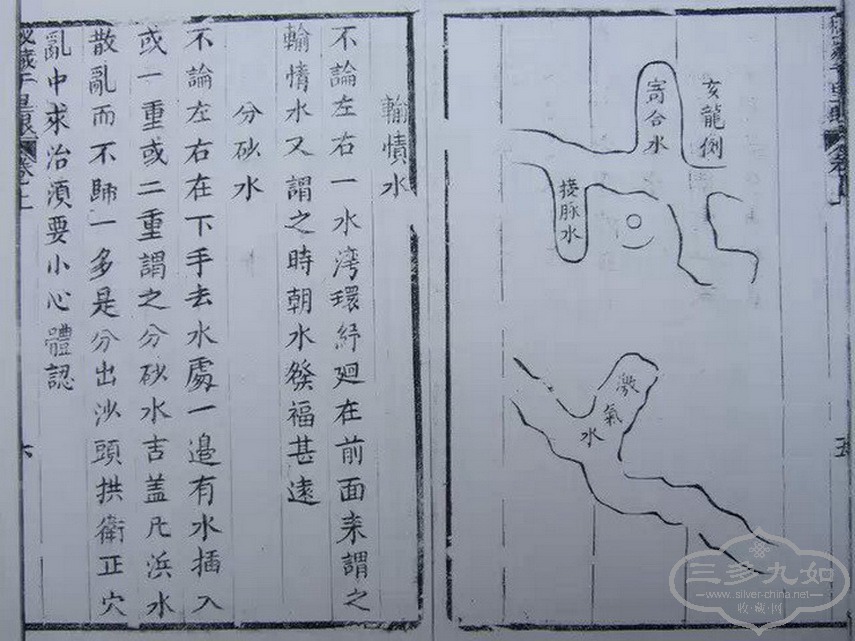 亥龍例
寄合水
接脉水
激氣水
五
輸情水
不論左右一水灣環紆廻在前面来謂之
輸情水又謂之時朝水發福甚遠
分砂水
不論左右在下手去水處一邊有水插入
或一重或二重謂之分砂水吉蓋凡浜水
散亂而不歸一多是分出沙頭拱衛正穴
亂中求治須要小心體認
六
三多九如
www.silver-china.net
收藏网